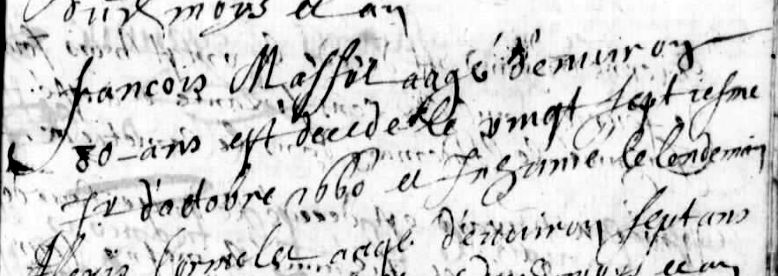 moys et an
francois Massot aagé d'environ
80 ans est decedé le vingt septiesme
Jr d'octobre 1660 et Inhumé le lendemain
Alexis aagé d'environ sept ans